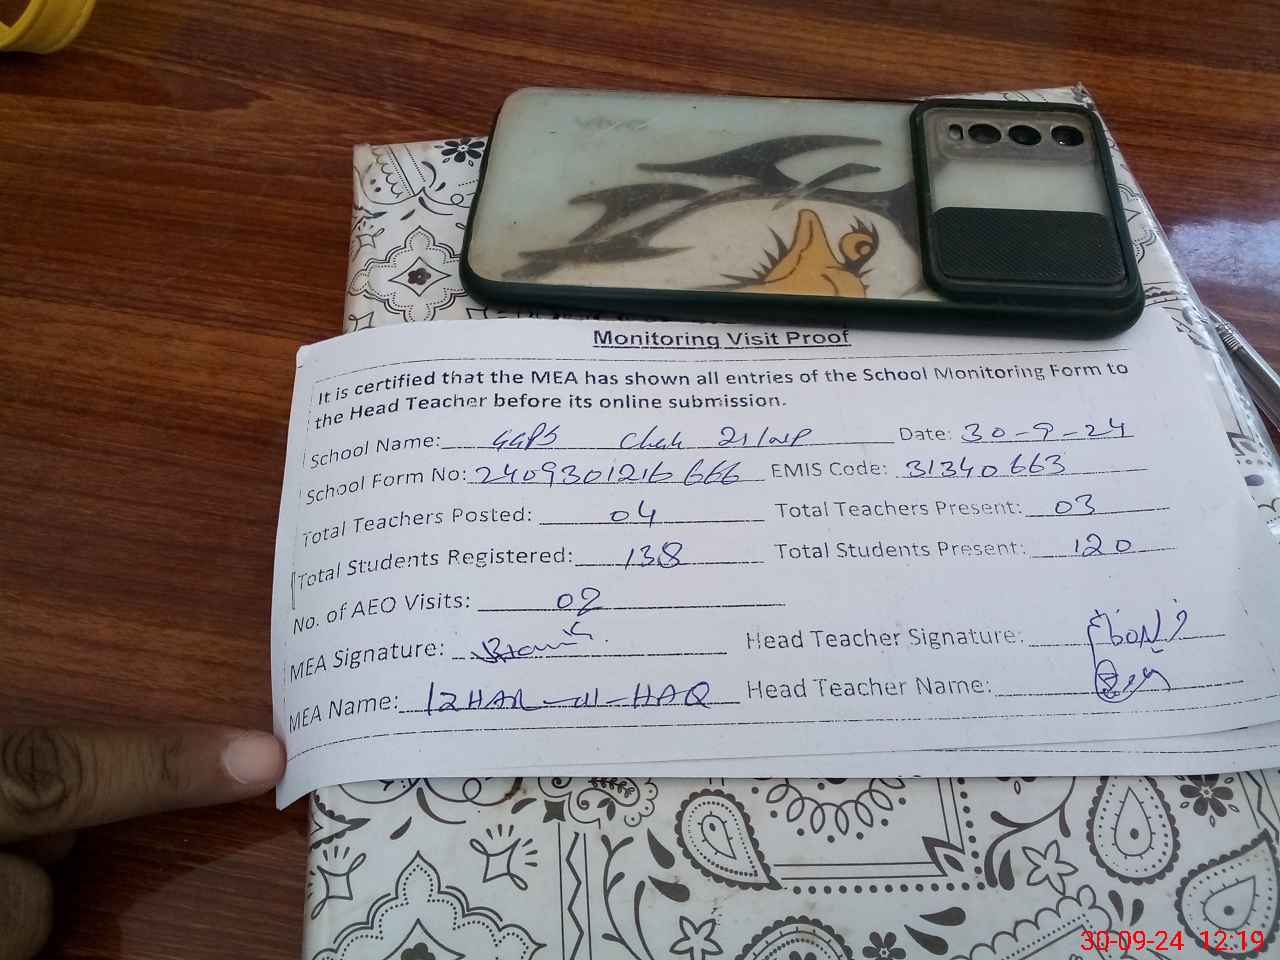 vivo
Monitoring Visit Proof
It is certified that the MEA has shown all entries of the School Monitoring Form to
the Head Teacher before its online submission.
School Name: GGPS Chak 21/WP Date: 30-9-24
School Form No: 2409301216666 EMIS Code: 31340663
Total Teachers Posted: 04 Total Teachers Present: 03
Total Students Registered: 138 Total Students Present: 120
No. of AEO Visits: 02
MEA Signature: Head Teacher Signature:
MEA Name: IZHAR-ul-HAQ Head Teacher Name:
30-09-24 12:19